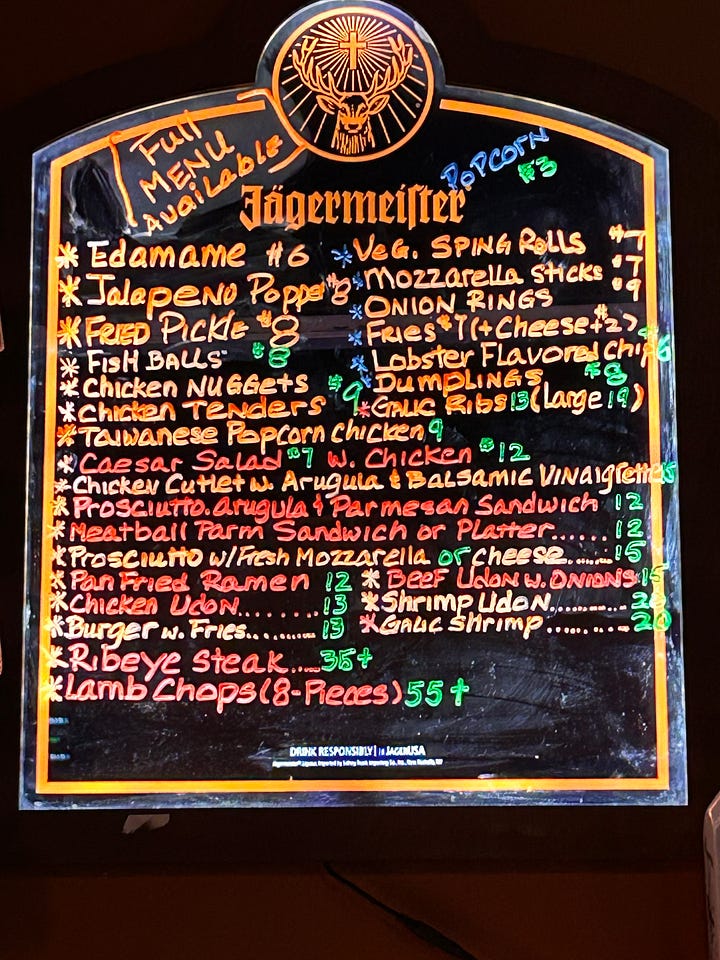 Full
MENU
Available
POPCORN
$3
Jägermeister
* Edamame #6
* Jalapeno Popper $8
* FRIED PICKLE $8
* FISH BALLS $8
* Chicken NUGGETS $9
* Chicken TENDERS
* VEG. SPING ROLLS $7
* Mozzarella Sticks $7
* ONION RINGS $9
* Fries $7 (+Cheese+2)
* Lobster Flavored Chip $6
* DUMPLINGS $8
* GALIC Ribs 13 (Large 19)
* Taiwanese Popcorn Chicken 9
* Caesar Salad $7 W. Chicken $12
* Chicken Cutlet w. Arugula & BALSAMIC VINAIGrette 15
* Prosciutto. Arugula & Parmesan Sandwich 12
* Meatball Parm Sandwich or Platter...... 12
* Prosciutto w/Fresh Mozzarella or Cheese...... 15
* Pan Fried Ramen 12
* BEEF UDON W. ONIONS 15
* Chicken UDON........ 13
* Shrimp UDON..........
* Burger w. Fries.......... 13
* GALIC Shrimp .......... 20
* Ribeye Steak.... 35+
* Lamb Chops (8-Pieces) 55+
DRINK RESPONSIBLY | JAGERUSA